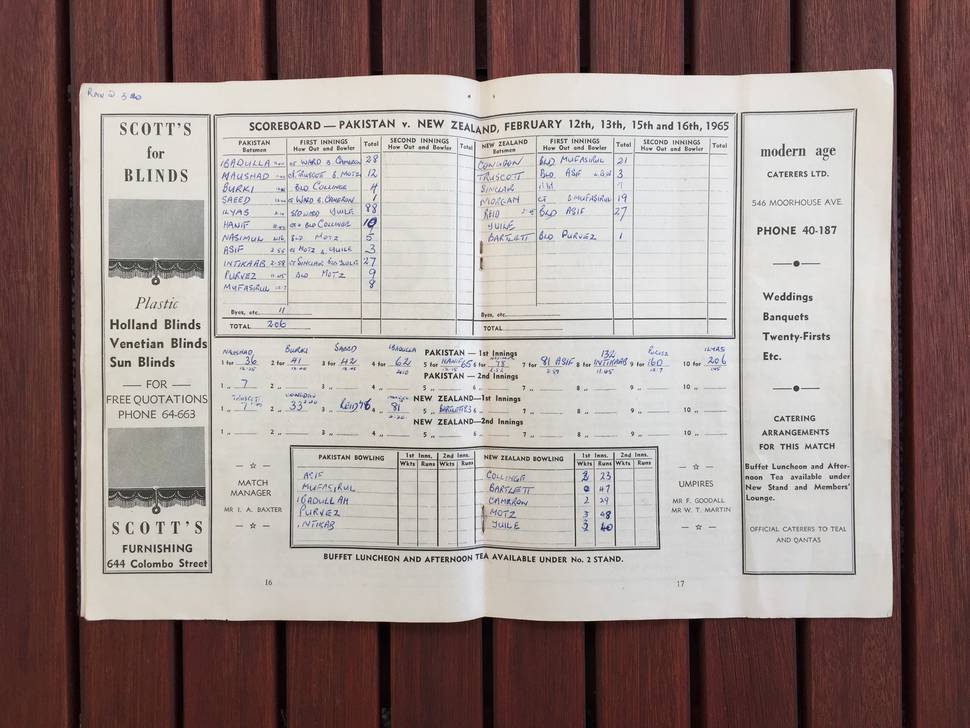 SCOTT'S
for
BLINDS
Plastic
Holland Blinds
Venetian Blinds
Sun Blinds
— FOR —
FREE QUOTATIONS
PHONE 64-663
SCOTT'S
FURNISHING
644 Colombo Street
SCOREBOARD — PAKISTAN v. NEW ZEALAND, FEBRUARY 12th, 13th, 15th and 16th, 1965
PAKISTAN Batsmen FIRST INNINGS How Out and Bowler Total SECOND INNINGS How Out and Bowler Total
IBADULLA CT WARD B. CAMERON 28
NAUSHAD CT. TRUSCOTT B. MOTZ 12
BURKI BLD COLLINGE 4
SAEED CT WARD B. CAMERON 1
ILYAS YUILE 88
HANIF BLD COLLINGE 10
NASIMUL BLD MOTZ 5
ASIF 2.56 CT MOTZ B YUILE 3
INTIKAB 2.58 CT SINCLAIR BLD YUILE 27
PURVEZ 11.05 BLD MOTZ 9
MUFASIRUL 12.7 8
Byes, etc. 11
TOTAL 206
NEW ZEALAND Batsmen FIRST INNINGS How Out and Bowler Total SECOND INNINGS How Out and Bowler Total
CONGDON BLD MUFASIRUL 21
TRUSCOTT BLD. ASIF LBW 3
SINCLAIR
MORGAN CT B MUFASIRUL 19
REID BLD ASIF 27
YUILE
BARTLETT BLD PURVEZ 1
Byes, etc.
TOTAL
NAUSHAD BURKI SAEED IBADULLA ILYAS
PAKISTAN — 1st Innings
1 for 36 2 for 41 3 for 42 4 for 62 5 for HANIF 65 6 for 78 7 for 81 ASIF 8 for 132 INTIKAAB 9 for 160 10 for 206
PAKISTAN — 2nd Innings
1 „ 7 2 „ 3 „ 4 „ 5 „ 6 „ 7 „ 8 „ 9 „ 10 „
NEW ZEALAND—1st Innings
1 „ 2 „ 33 3 „ REID 76 4 „ 81 5 „ BARTLETT 83 6 „ 7 „ 8 „ 9 „ 10 „
NEW ZEALAND—2nd Innings
1 „ 2 „ 3 „ 4 „ 5 „ 6 „ 7 „ 8 „ 9 „ 10 „
MATCH
MANAGER
MR I. A. BAXTER
PAKISTAN BOWLING 1st Inns. Wkts Runs 2nd Inns. Wkts Runs
ASIF
MUFASIRUL
IBADULLAH
PURVEZ
INTIKAB
NEW ZEALAND BOWLING 1st Inns. Wkts Runs 2nd Inns. Wkts Runs
COLLINGE 2 23
BARTLETT 0 47
CAMERON 2 29
MOTZ 3 48
YUILE 3 40
UMPIRES
MR F. GOODALL
MR W. T. MARTIN
BUFFET LUNCHEON AND AFTERNOON TEA AVAILABLE UNDER No. 2 STAND.
16
17
modern age
CATERERS LTD.
546 MOORHOUSE AVE.
PHONE 40-187
Weddings
Banquets
Twenty-Firsts
Etc.
CATERING
ARRANGEMENTS
FOR THIS MATCH
Buffet Luncheon and After-
noon Tea available under
New Stand and Members'
Lounge.
OFFICIAL CATERERS TO TEAL
AND QANTAS